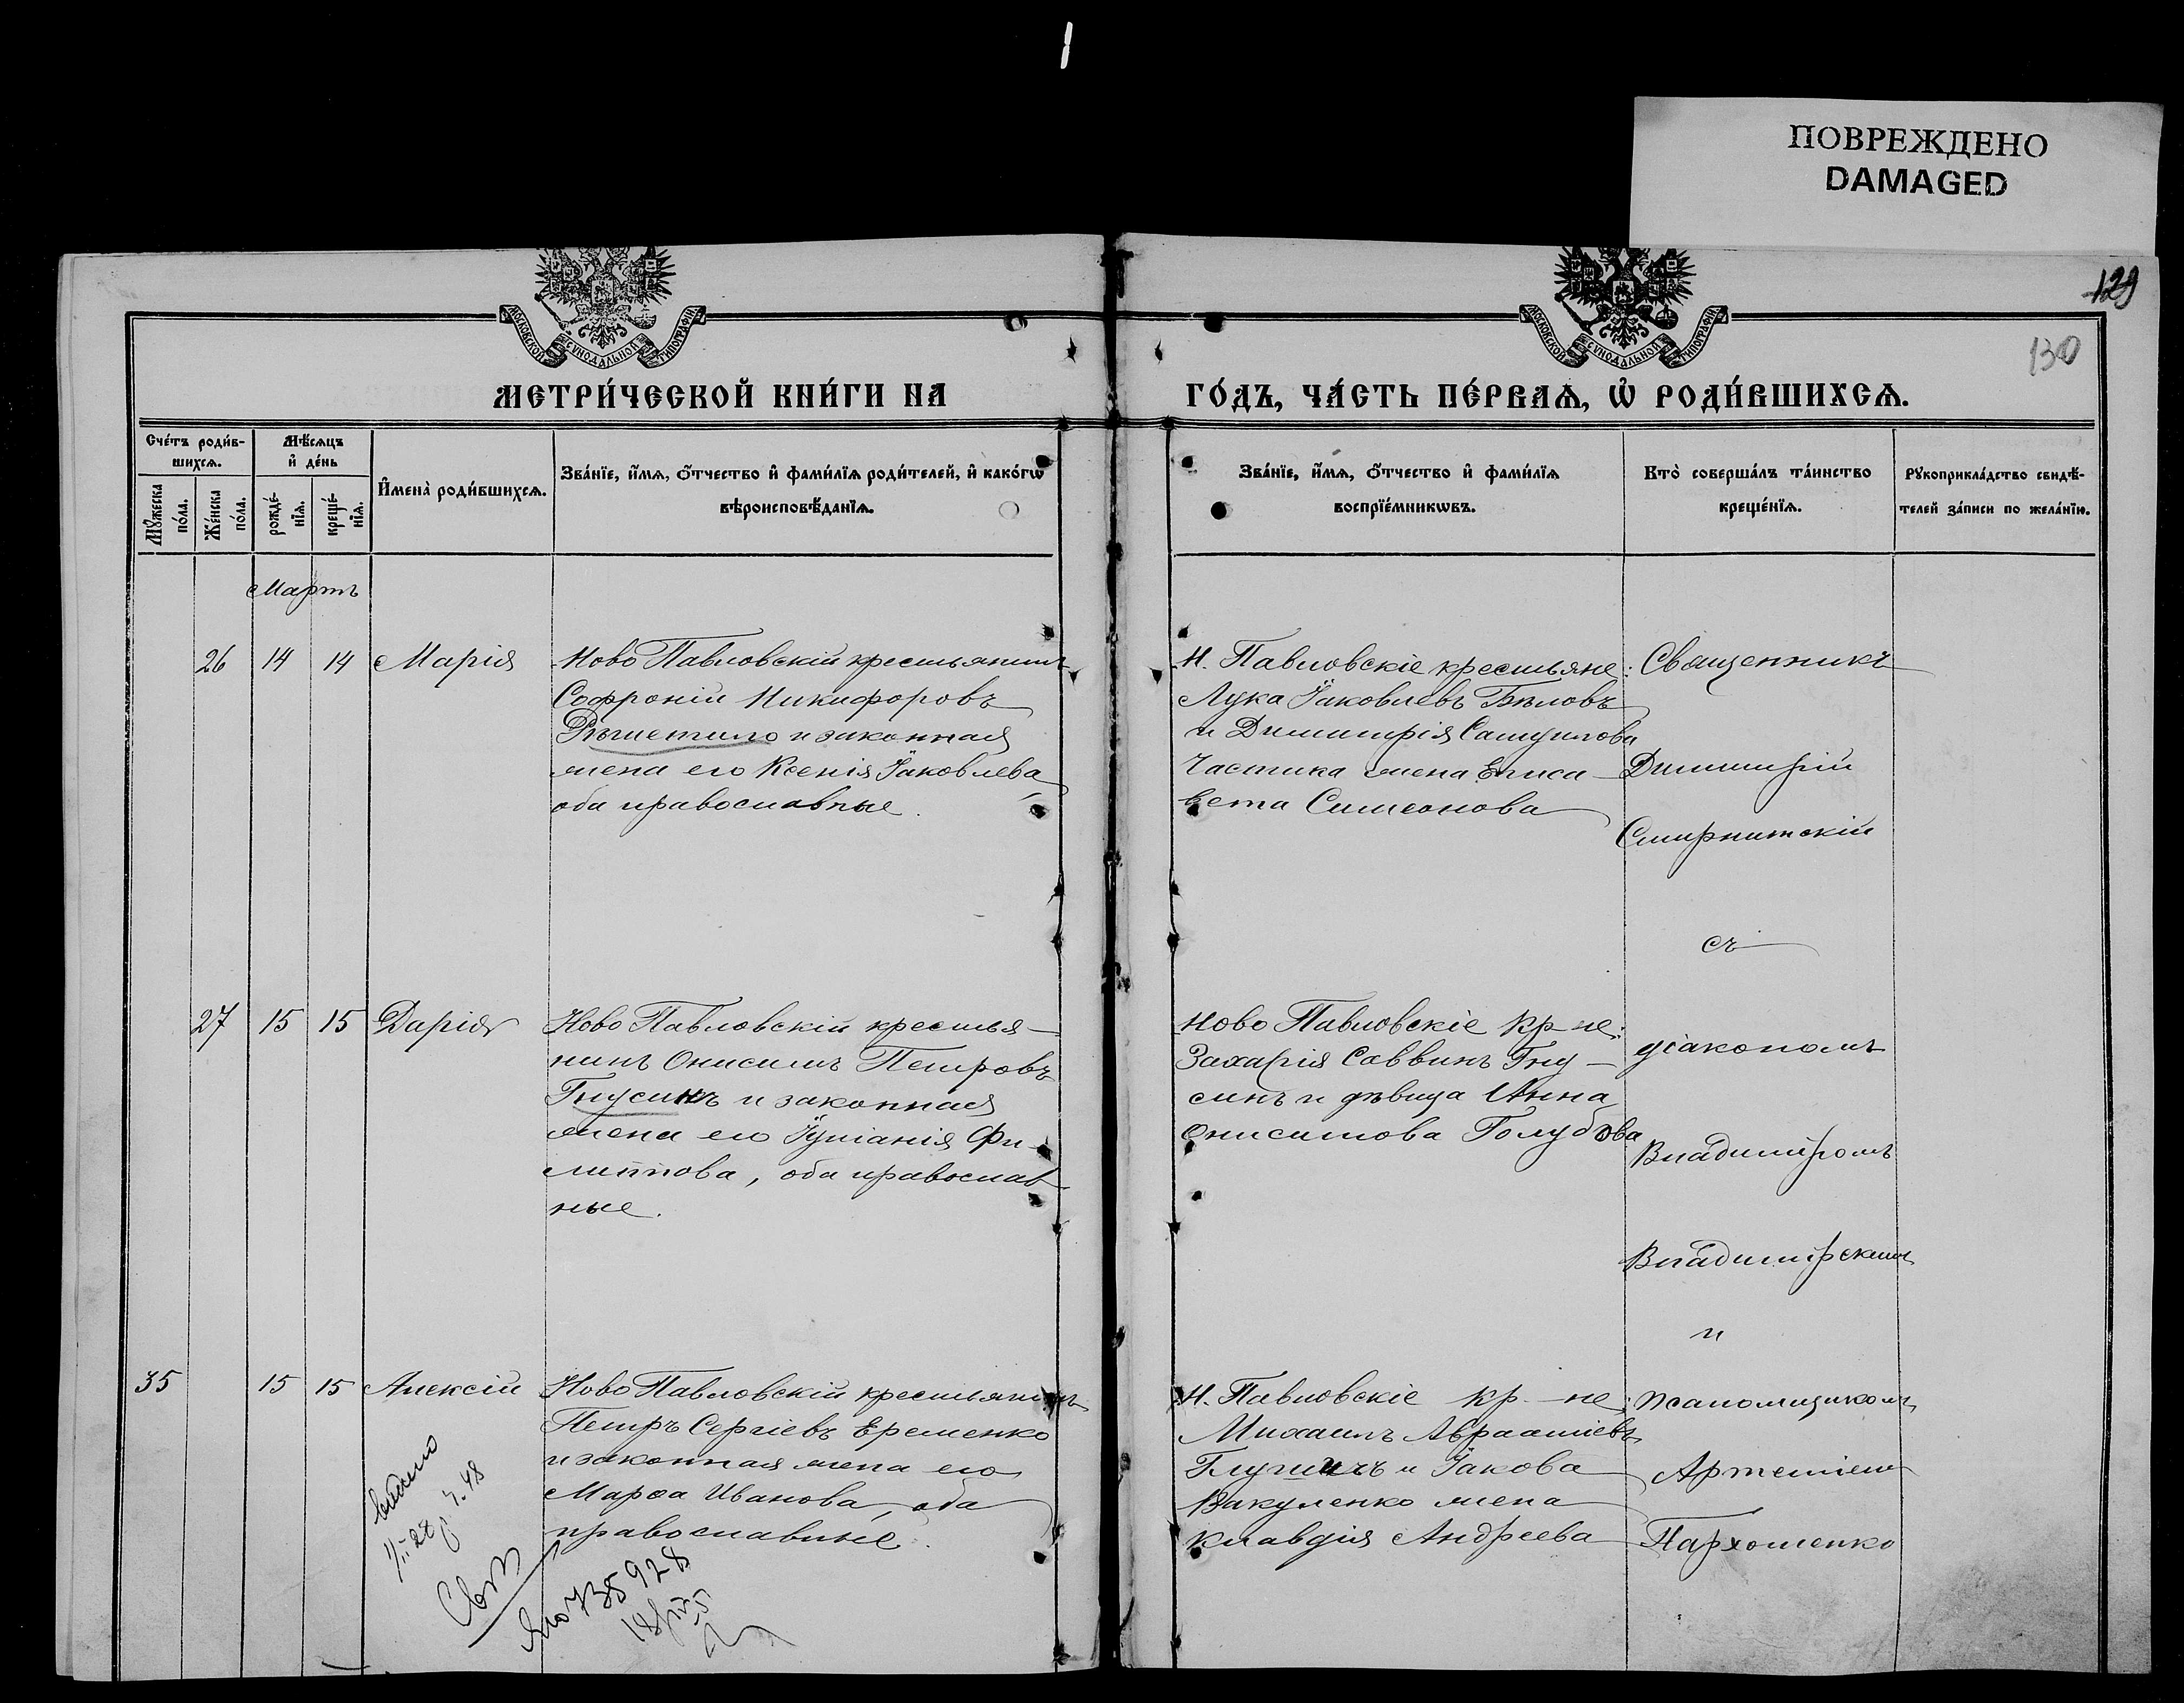 ПОВРЕЖДЕНО
DAMAGED
129
130
МОСКОВСКОЙ СѴНОДАЛЬНОЙ ТИПОГРАФІИ
МОСКОВСКОЙ СѴНОДАЛЬНОЙ ТИПОГРАФІИ
МЕТРИ́ЧЕСКОЙ КНИ́ГИ НА
ГО́ДЪ, ЧА́СТЬ ПЕ́РВАѦ, Ѡ҆ РОДИ́ВШИХСѦ.
Сче́тъ роди́в-
шихсѧ.
Мѣ́сѧцъ
и҆ де́нь
Мꙋ́жеска
по́ла.
Же́нска
по́ла.
рожде́-
нїѧ.
креще́-
нїѧ.
И҆мена̀ роди́вшихсѧ.
Зва́нїе, и҆́мѧ, ѻ҆́тчество и҆ фами́лїѧ роди́телей, и҆ како́гѡ
вѣроисповѣ́данїѧ.
Зва́нїе, и҆́мѧ, ѻ҆́тчество и҆ фами́лїѧ
воспрїе́мникѡвъ.
Кто̀ соверша́лъ та́инство
креще́нїѧ.
Рꙋкоприкла́дство свидѣ́-
телей за́писи по жела́нїю.
Мартъ
26 14 14 Марія
Ново Павловскій крестьянинъ
Софроній Никифоровъ
и законная
жена его Ксенія Іаковлева,
оба православные.
Н. Павловскіе крестьяне:
Лука Іаковлевъ Бѣловъ
и Димитрія Самуилова
Частика жена Елиса-
вета Симеонова
Священникъ
Димитрій
Смирнитскій
съ
27 15 15 Дарія
Ново Павловскій крестья-
нинъ Онисимъ Петровъ
Гнусинъ и законная
жена его Іуліанія Фи-
липпова, оба православ
ные.
Ново Павловскіе кр-не:
Захарія Саввинъ Гну-
синъ и дѣвица Анна
Онисимова Голубова
діакономъ
Владиміромъ
Владимірскимъ
и
35 15 15 Алексій
Ново Павловскій крестьянинъ
Петръ Сергіевъ Еременко
и законная жена его
Марѳа Иванова, оба
православные.
Н. Павловскіе кр-не:
Михаилъ Авраамiевъ
и Іакова
Вакуленко жена
Клавдія Андреева
псаломщикомъ
Артеміемъ
Пархоменко
выдано
735928